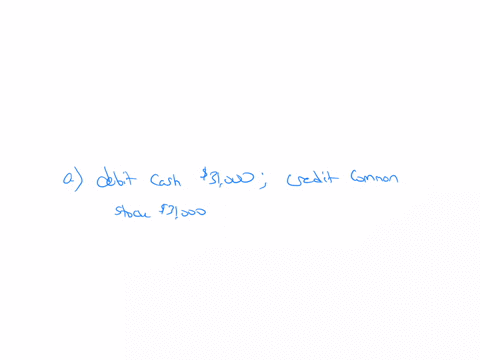 a) debit cash $31,000; credit common
stock $31,000